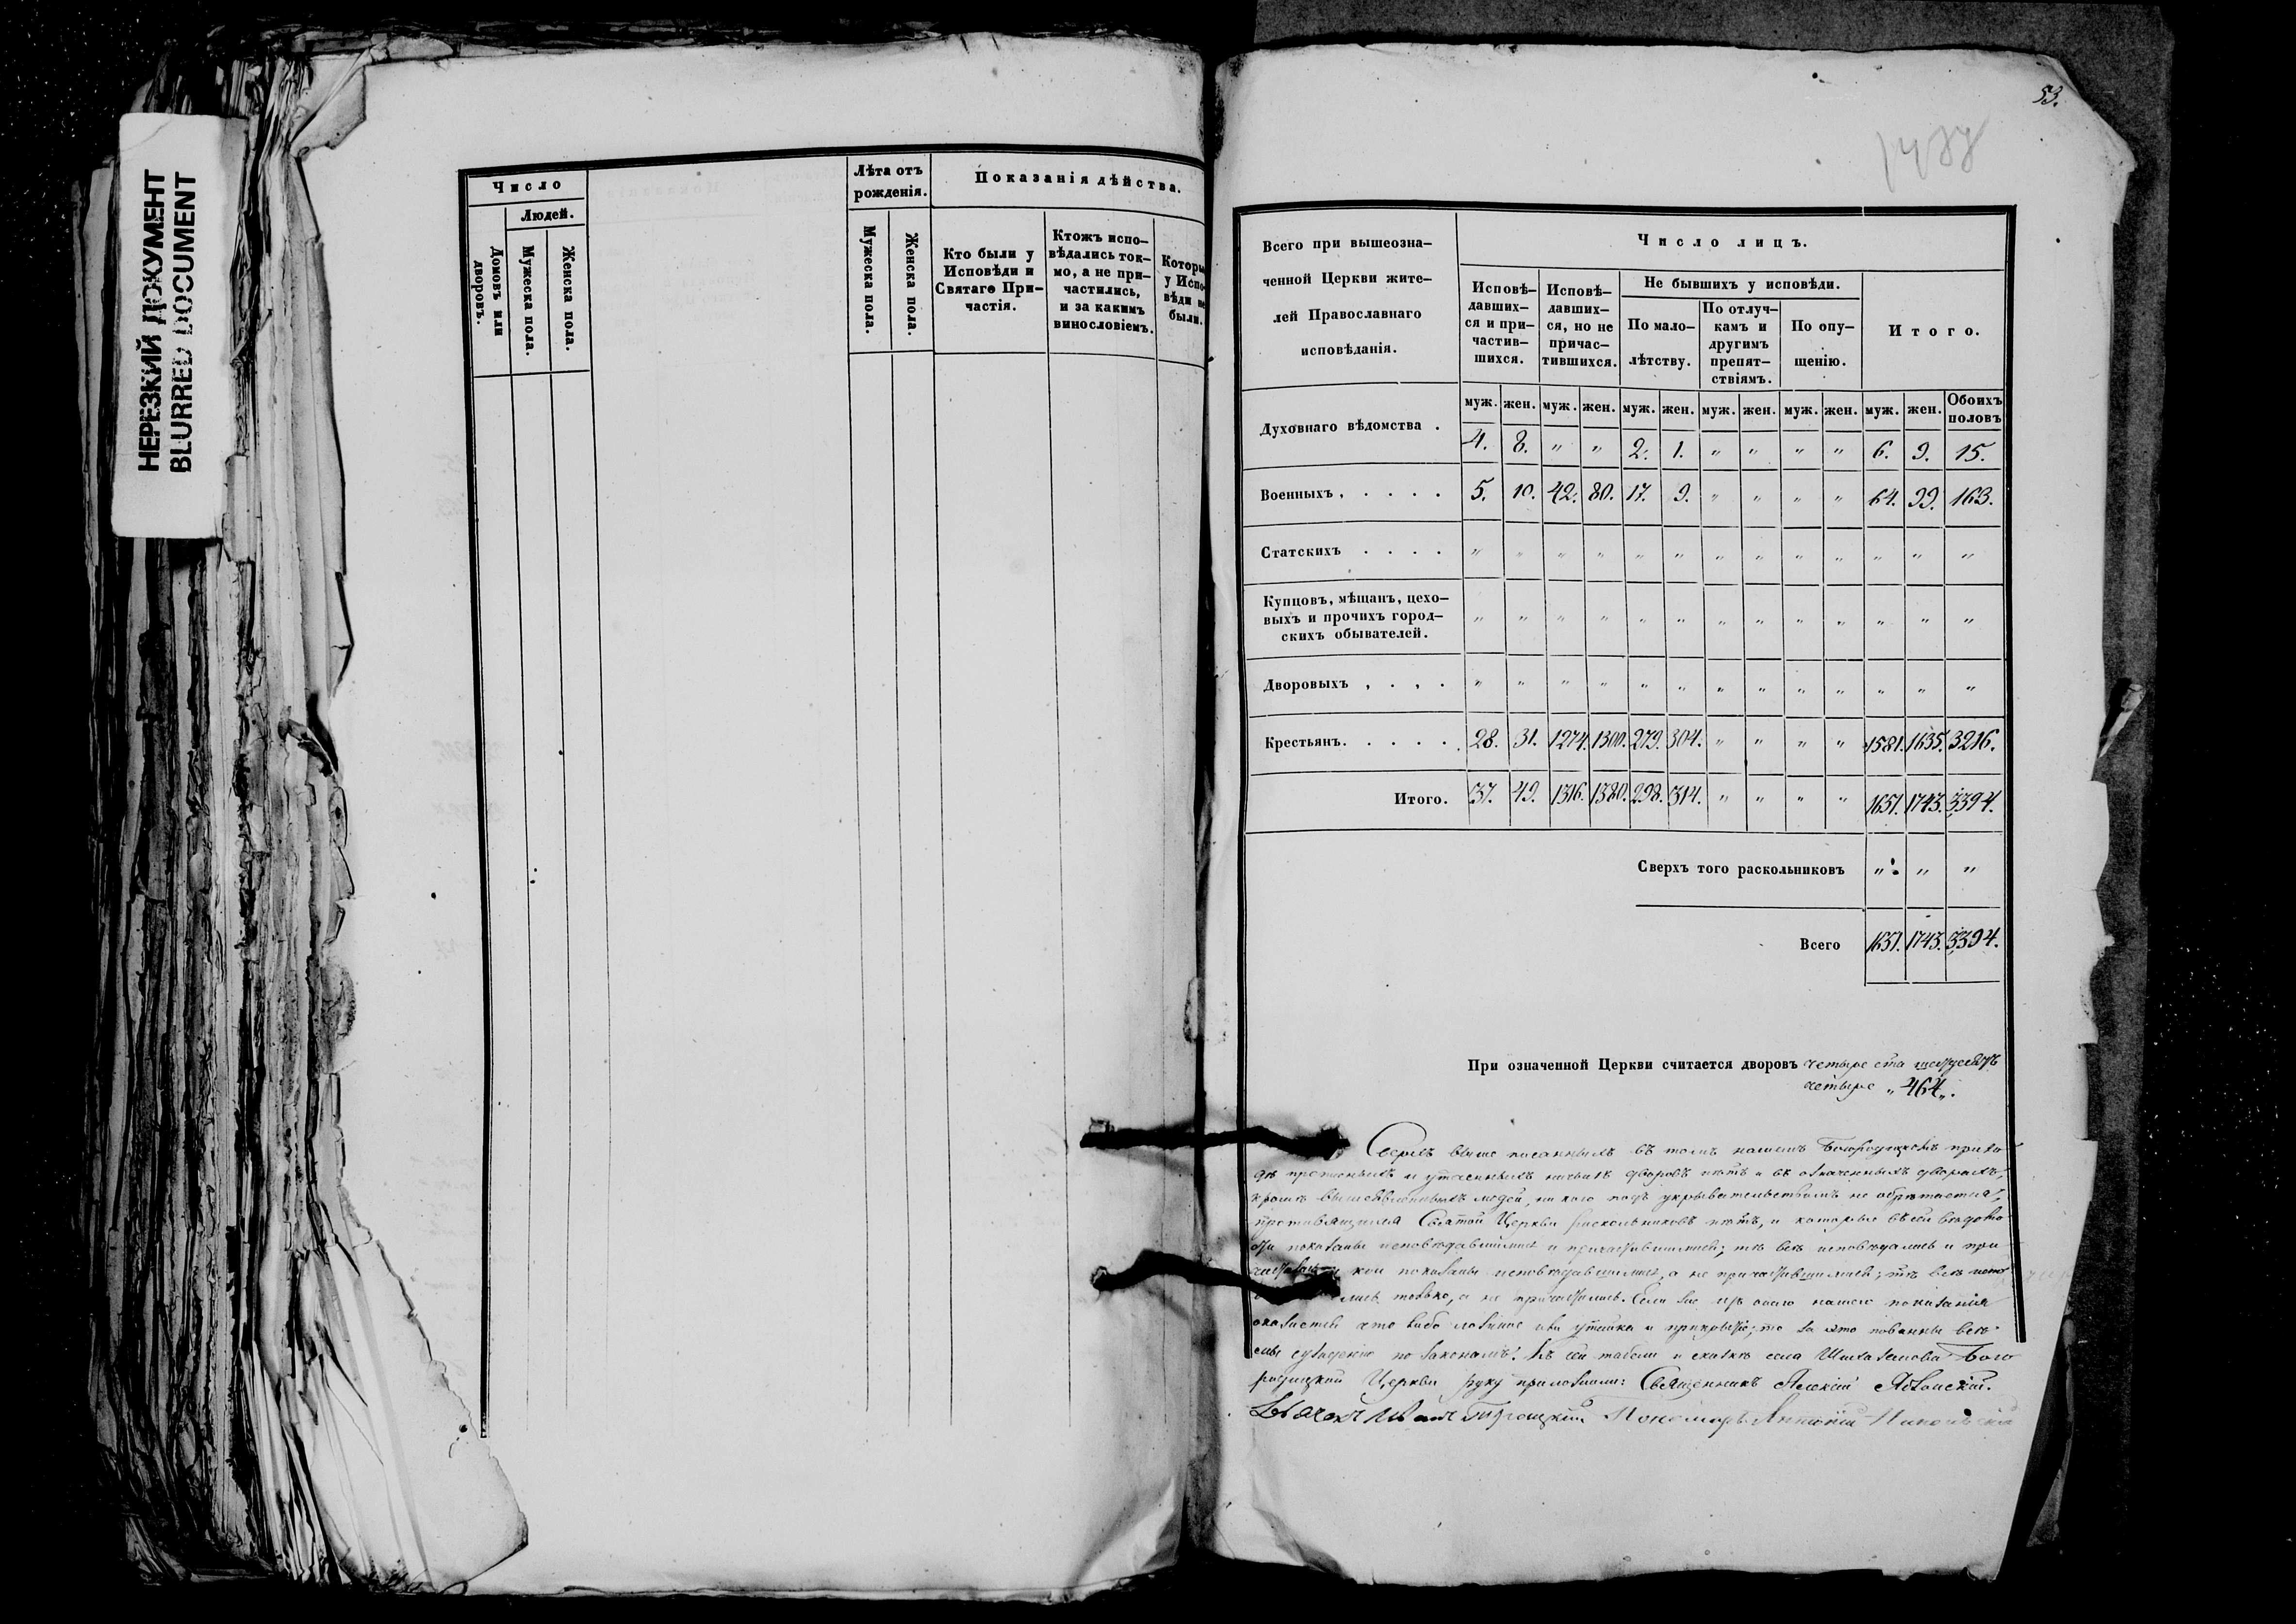 НЕРЕЗКИЙ ДОКУМЕНТ
BLURRED DOCUMENT
Число
Людей.
Домовъ или дворовъ.
Мужеска пола.
Женска пола.
Лѣта отъ
рожденія.
Мужеска пола.
Женска пола.
Показанія дѣйства.
Кто были у
Исповѣди и
Святаго При-
частія.
Ктожъ испо-
вѣдались ток-
мо, а не при-
частились,
и за какимъ
винословіемъ.
Которы
у Испо
вѣди не
были.
53.
Всего при вышеозна-
ченной Церкви жите-
лей Православнаго
исповѣданія.
Число лицъ.
Исповѣ-
давших-
ся и при-
частив-
шихся.
Исповѣ-
давших-
ся, но не
причас-
тившихся.
Не бывшихъ у исповѣди.
По мало-
лѣтству.
По отлуч-
камъ и
другимъ
препят-
ствіямъ.
По опу-
щенію.
Итого.
муж. жен. муж. жен. муж. жен. муж. жен. муж. жен. муж. жен. Обоихъ половъ
Духовнаго вѣдомства . 4. 8. " " 2. 1. " " " " 6. 9. 15.
Военныхъ . . . . . 5. 10. 42. 80. 17. 9. " " " " 64. 99. 163.
Статскихъ . . . . " " " " " " " " " " " " "
Купцовъ, мѣщанъ, цехо-
выхъ и прочихъ город-
скихъ обывателей. " " " " " " " " " " " " "
Дворовыхъ , . , . " " " " " " " " " " " " "
Крестьянъ. . . . . . 28. 31. 1274. 1300. 279. 304. " " " " 1581. 1635. 3216.
Итого. 37. 49. 1316. 1380. 298. 314. " " " " 1651. 1743. 3394.
Сверхъ того раскольниковъ " " "
Всего 1651. 1743. 3394.
При означенной Церкви считается дворовъ четыре ста шестьдесятъ
четыре „ 464 „.
Сверхъ выше писанныхъ въ томъ нашемъ Богородицкомъ прихо
дѣ прописныхъ и утаенныхъ ничьихъ дворовъ нѣтъ и въ означенныхъ дворахъ,
кромѣ вышеявленныхъ людей, ни кого подъ укрывательствомъ не обрѣтается;
противящихся Святой Церкви раскольниковъ нѣтъ, и которые въ сей вѣдомо
сти показаны исповѣдавшимися и причастившимися; тѣ всѣ исповѣдались и при
кои показаны исповѣдавшимися, а не причастившимися; тѣ всѣ испо
лись только, а не причастились. Если же изъ сего нашего показанія
окажется что либо ложное или утайка и прикрытіе; то за это повинны всѣ
мы сужденію по законамъ. Къ сей табели и сказкѣ села Богo
родицкой Церкви руку приложили: Священникъ Алексій Яблонскій.
Дьячокъ Иванъ Троицкій Пономарь Антоній